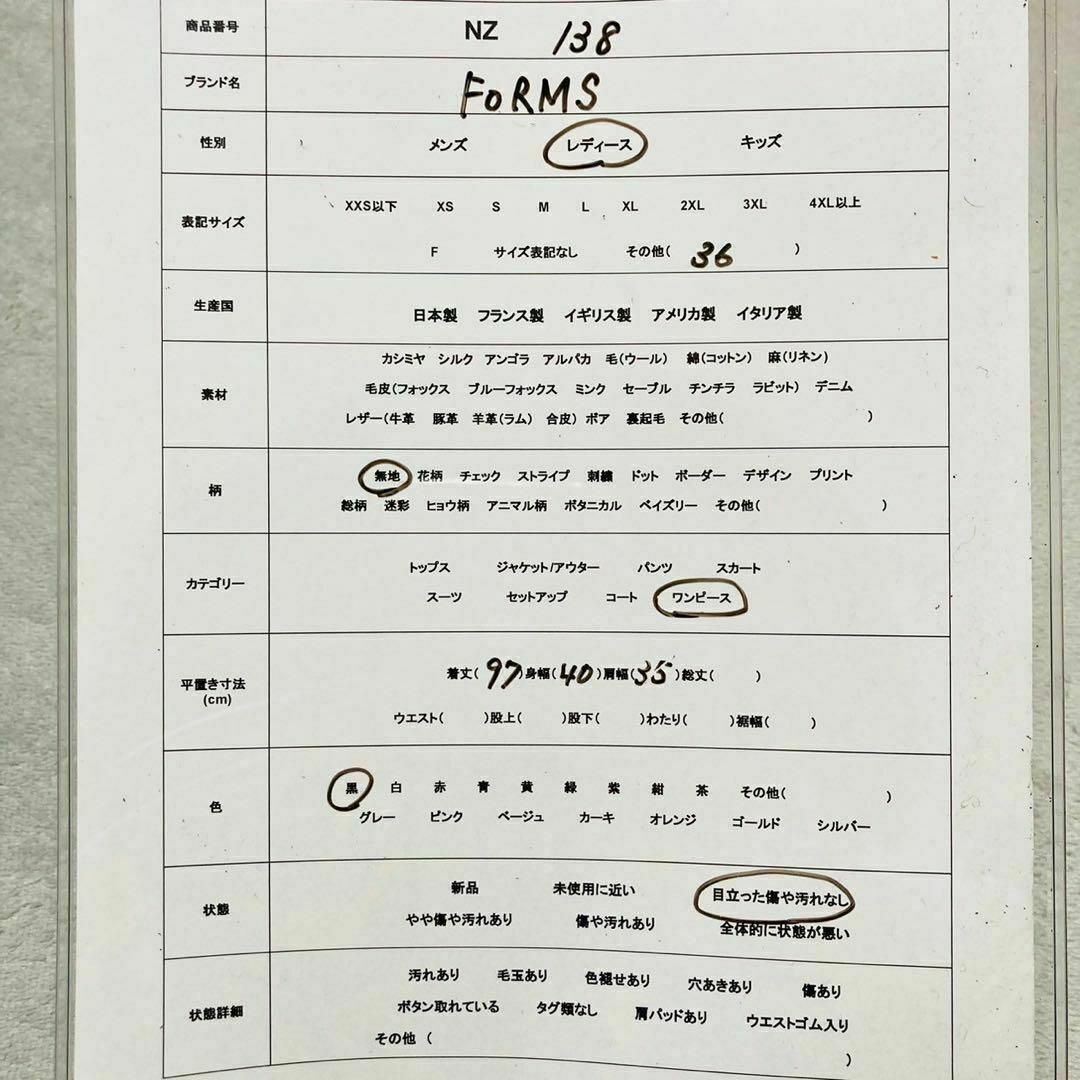 商品番号 NZ 138
ブランド名 FoRMS
性別 メンズ レディース キッズ
表記サイズ XXS以下 XS S M L XL 2XL 3XL 4XL以上
F サイズ表記なし その他( 36 )
生産国 日本製 フランス製 イギリス製 アメリカ製 イタリア製
素材 カシミヤ シルク アンゴラ アルパカ 毛(ウール) 綿(コットン) 麻(リネン)
毛皮(フォックス ブルーフォックス ミンク セーブル チンチラ ラビット) デニム
レザー(牛革 豚革 羊革(ラム) 合皮) ボア 裏起毛 その他( )
柄 無地 花柄 チェック ストライプ 刺繍 ドット ボーダー デザイン プリント
総柄 迷彩 ヒョウ柄 アニマル柄 ボタニカル ペイズリー その他( )
カテゴリー トップス ジャケット/アウター パンツ スカート
スーツ セットアップ コート ワンピース
平置き寸法 (cm) 着丈( 97 )身幅( 40 )肩幅( 35 )総丈( )
ウエスト( )股上( )股下( )わたり( )裾幅( )
色 黒 白 赤 青 黄 緑 紫 紺 茶 その他( )
グレー ピンク ベージュ カーキ オレンジ ゴールド シルバー
状態 新品 未使用に近い 目立った傷や汚れなし
やや傷や汚れあり 傷や汚れあり 全体的に状態が悪い
状態詳細 汚れあり 毛玉あり 色褪せあり 穴あきあり 傷あり
ボタン取れている タグ類なし 肩パッドあり ウエストゴム入り
その他 ( )